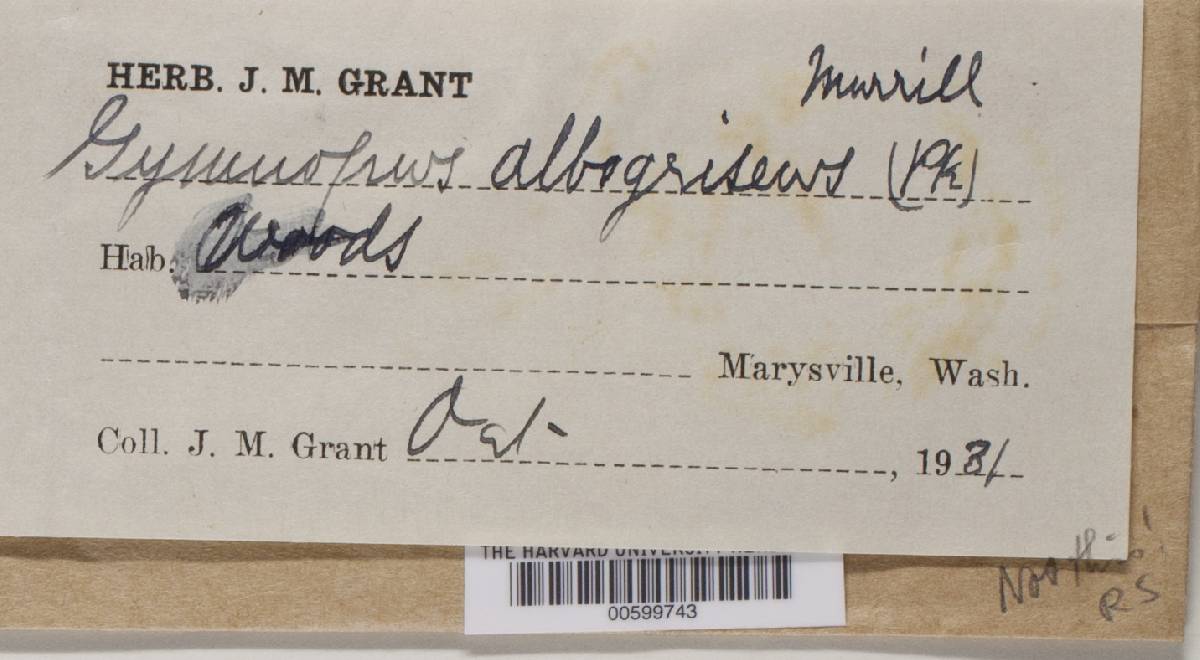 HERB. J. M. GRANT
Murrill
Gymnopus albogriseus (Pk)
Hab. Woods
Marysville, Wash.
Coll. J. M. Grant Oct- , 1931
THE HARVARD UNIVERSITY
00599743
Not this!
RS